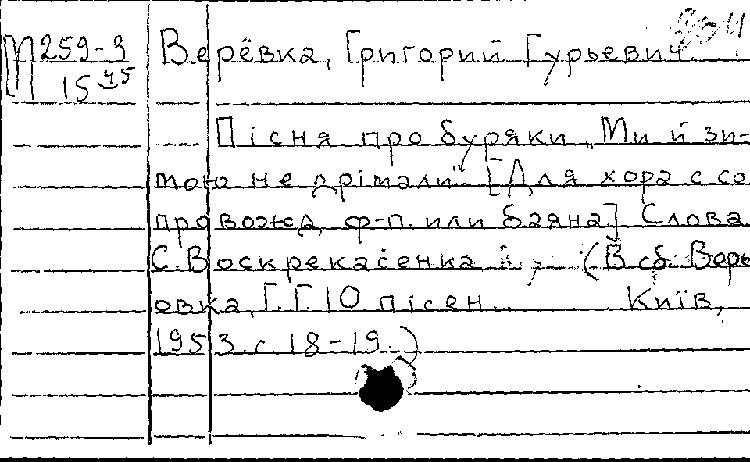 М 259-3
15 45
Верёвка, Григорий Гурьевич.
Пісня про буряки „Ми й зи-
мою не дрімали" [Для хора с со
провожд. ф-п. или баяна] Слова
С. Воскрекасенка
(В сб. Верь
овка, Г.Г. 10 пісен. Київ,
1953 с 18-19.)